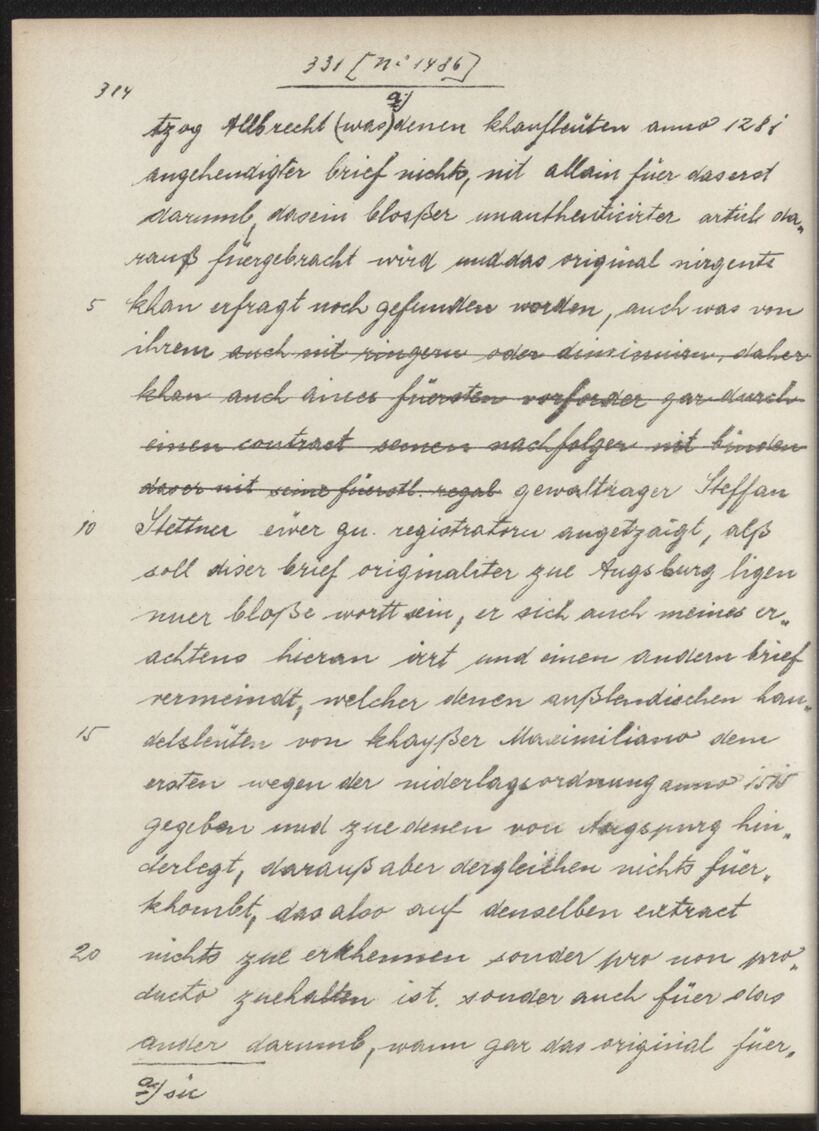 331 [No 1486]
314
tzog Allbrecht (was) a) denen khaufleüten anno 1281
angehendigter brief nichts, nit allain füer das erst
darumb, das ein bloßer unauthentisirter articl da„
rauß füergebracht wird und das original nirgents
5 khan erfragt noch gefunden worden, auch was von
ihrem auch nit ringern oder diminuirn, daher
khan auch aines fürsten vorforder gar durch
einen contract seinen nachfolger nit binden
das er nit seine fürstl. regal gewalttrager Steffan
10 Stettner eüer gn. registratorn angetzaigt, alß
soll diser brief originaliter zue Augsburg ligen
nuer bloße wortt sein, er sich auch meines er„
achtens hieran irrt und einen andern brief
vermeindt, welcher denen außlendischen han„
15 delsleüten von khayßer Maximiliano dem
ersten wegen der niderlagsordnung anno 1515
gegeben und zue denen von Augspurg hin„
derlegt, darauß aber dergleichen nichts füer„
khombt, das also auf denselben extract
20 nichts zue erkhennen sonder pro non pro„
ducto zuehalten ist, sonder auch füer das
ander darumb, wann gar das original füer„
a) sic